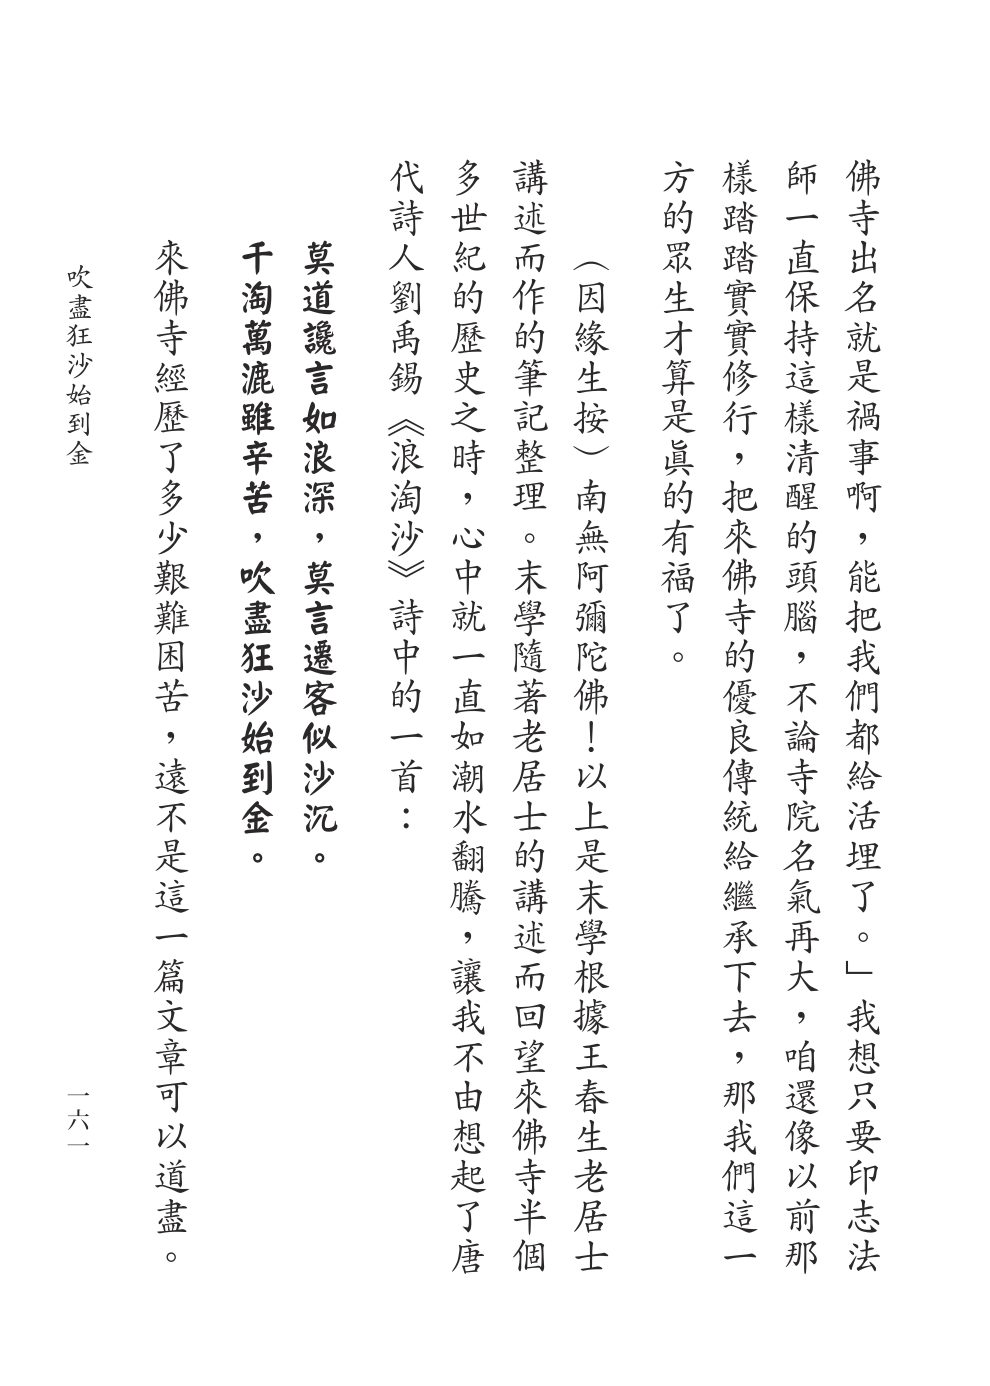 佛寺出名就是禍事啊，能把我們都給活埋了。」我想只要印志法
師一直保持這樣清醒的頭腦，不論寺院名氣再大，咱還像以前那
樣踏踏實實修行，把來佛寺的優良傳統給繼承下去，那我們這一
方的眾生才算是眞的有福了。
（因緣生按）南無阿彌陀佛！以上是末學根據王春生老居士
講述而作的筆記整理。末學隨著老居士的講述而回望來佛寺半個
多世紀的歷史之時，心中就一直如潮水翻騰，讓我不由想起了唐
代詩人劉禹錫《浪淘沙》詩中的一首：
莫道讒言如浪深，莫言遷客似沙沉。
千淘萬漉雖辛苦，吹盡狂沙始到金。
來佛寺經歷了多少艱難困苦，遠不是這一篇文章可以道盡。
吹盡狂沙始到金
一六一